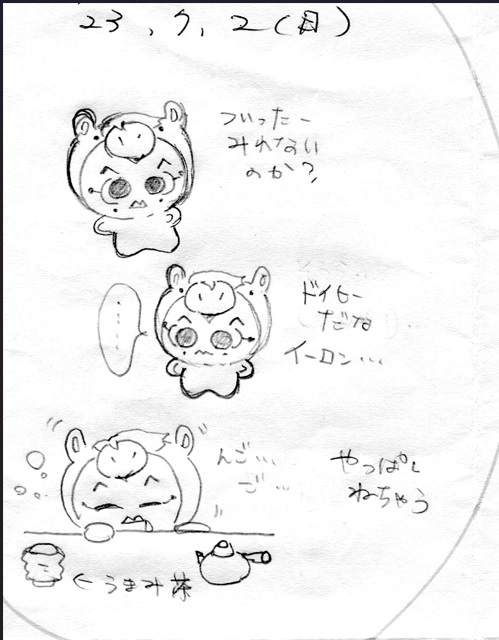 23.7.2(日)
ついったー
みれないい
のか?
ドイヒー
だな
イーロン...
.....
んご...
ご...
やっぱし
ねちゃう
←うまみ茶